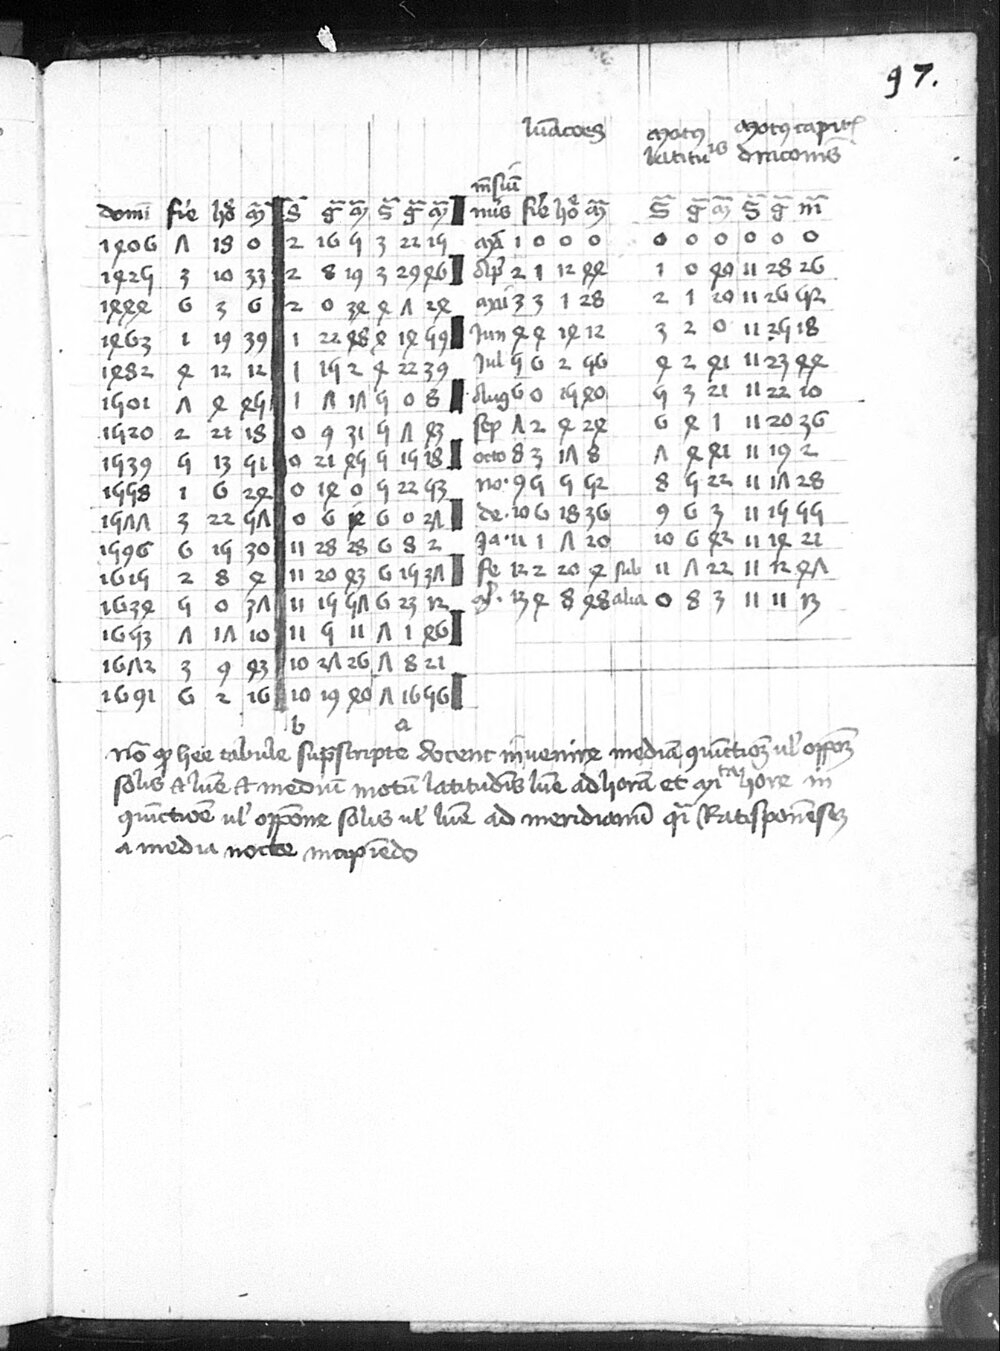 97.
lūacōes motꝰ motꝰ capitꝭ
latitudīs draconis
mēsiū
domī fīe hō m̄ S̄ ḡ m̄ S̄ ḡ m̄ nūs fīe hō m̄ S̄ ḡ m̄ S̄ ḡ m̄
1406 7 18 0 2 16 5 3 22 15 1 0 0 0 0 0 0 0 0 0
1425 3 10 33 2 8 19 3 29 46 Ap̄l 2 1 12 44 1 0 40 11 28 26
1444 6 3 6 2 0 34 4 7 24 mai 3 3 1 28 2 1 20 11 26 52
1463 1 19 39 1 22 48 4 14 59 Jun 4 4 14 12 3 2 0 11 25 18
1482 4 12 12 1 15 2 4 22 39 Jul 5 6 2 56 4 2 41 11 23 44
1501 7 4 45 1 7 17 5 0 8 Aug 6 0 15 40 5 3 21 11 22 10
1520 2 21 18 0 9 31 5 7 43 sep 7 2 4 24 6 4 1 11 20 36
1539 5 13 51 0 21 45 5 15 18 octo 8 3 17 8 7 4 41 11 19 2
1558 1 6 24 0 14 0 5 22 53 no· 9 5 5 52 8 5 22 11 17 28
1577 3 22 57 0 6 14 6 0 27 de· 10 6 18 36 9 6 3 11 15 55
1596 6 15 30 11 28 28 6 8 2 Ja· 11 1 7 20 10 6 42 11 14 21
1615 2 8 4 11 20 43 6 15 37 fe 12 2 20 4 11 7 22 11 12 47
1634 5 0 37 11 15 57 6 23 12 13 4 8 48 alia 0 8 3 11 11 13
1653 7 17 10 11 5 11 7 1 46
1672 3 9 43 10 27 26 7 8 21
1691 6 2 16 10 19 40 7 16 56
b a
Nō ꝙ hee tabule sup̄scripte docent īnvenire mediā ꝯiūctionē ul oppōē
solis et lune et mediū motū latitudīs lune ad horā et hore in
ꝯiūctiōe ul oppōne solis ul lune ad meridianū Ratisponēsē
a media nocte incipiēdo